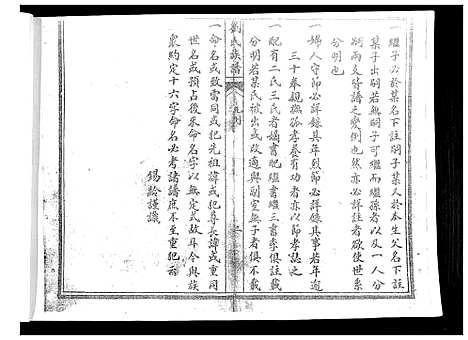 一繼子必於某名下註嗣子某人於本生父名下註
某子出嗣若無嗣子可繼而繼孫者以及一人分
祧兩支皆譜之變例也然亦必詳註者欲使世系
分明也
一婦人守節必詳錄其年烈節必詳錄其事若年逾
三十奉親撫孤孝養有功者亦以節孝誌之
一配有二氏三氏者嫡書配繼書繼三書季俱註載
分明若某氏被出或改適與副室無子者俱不載
劉氏族譜
凡例
一命名或致雷同或犯先祖諱或犯尊長諱或重同
世名或預占後來命名字以無定式故耳今與族
衆約定十六字命名必考諸譜庶不至重犯云
錫齡謹識